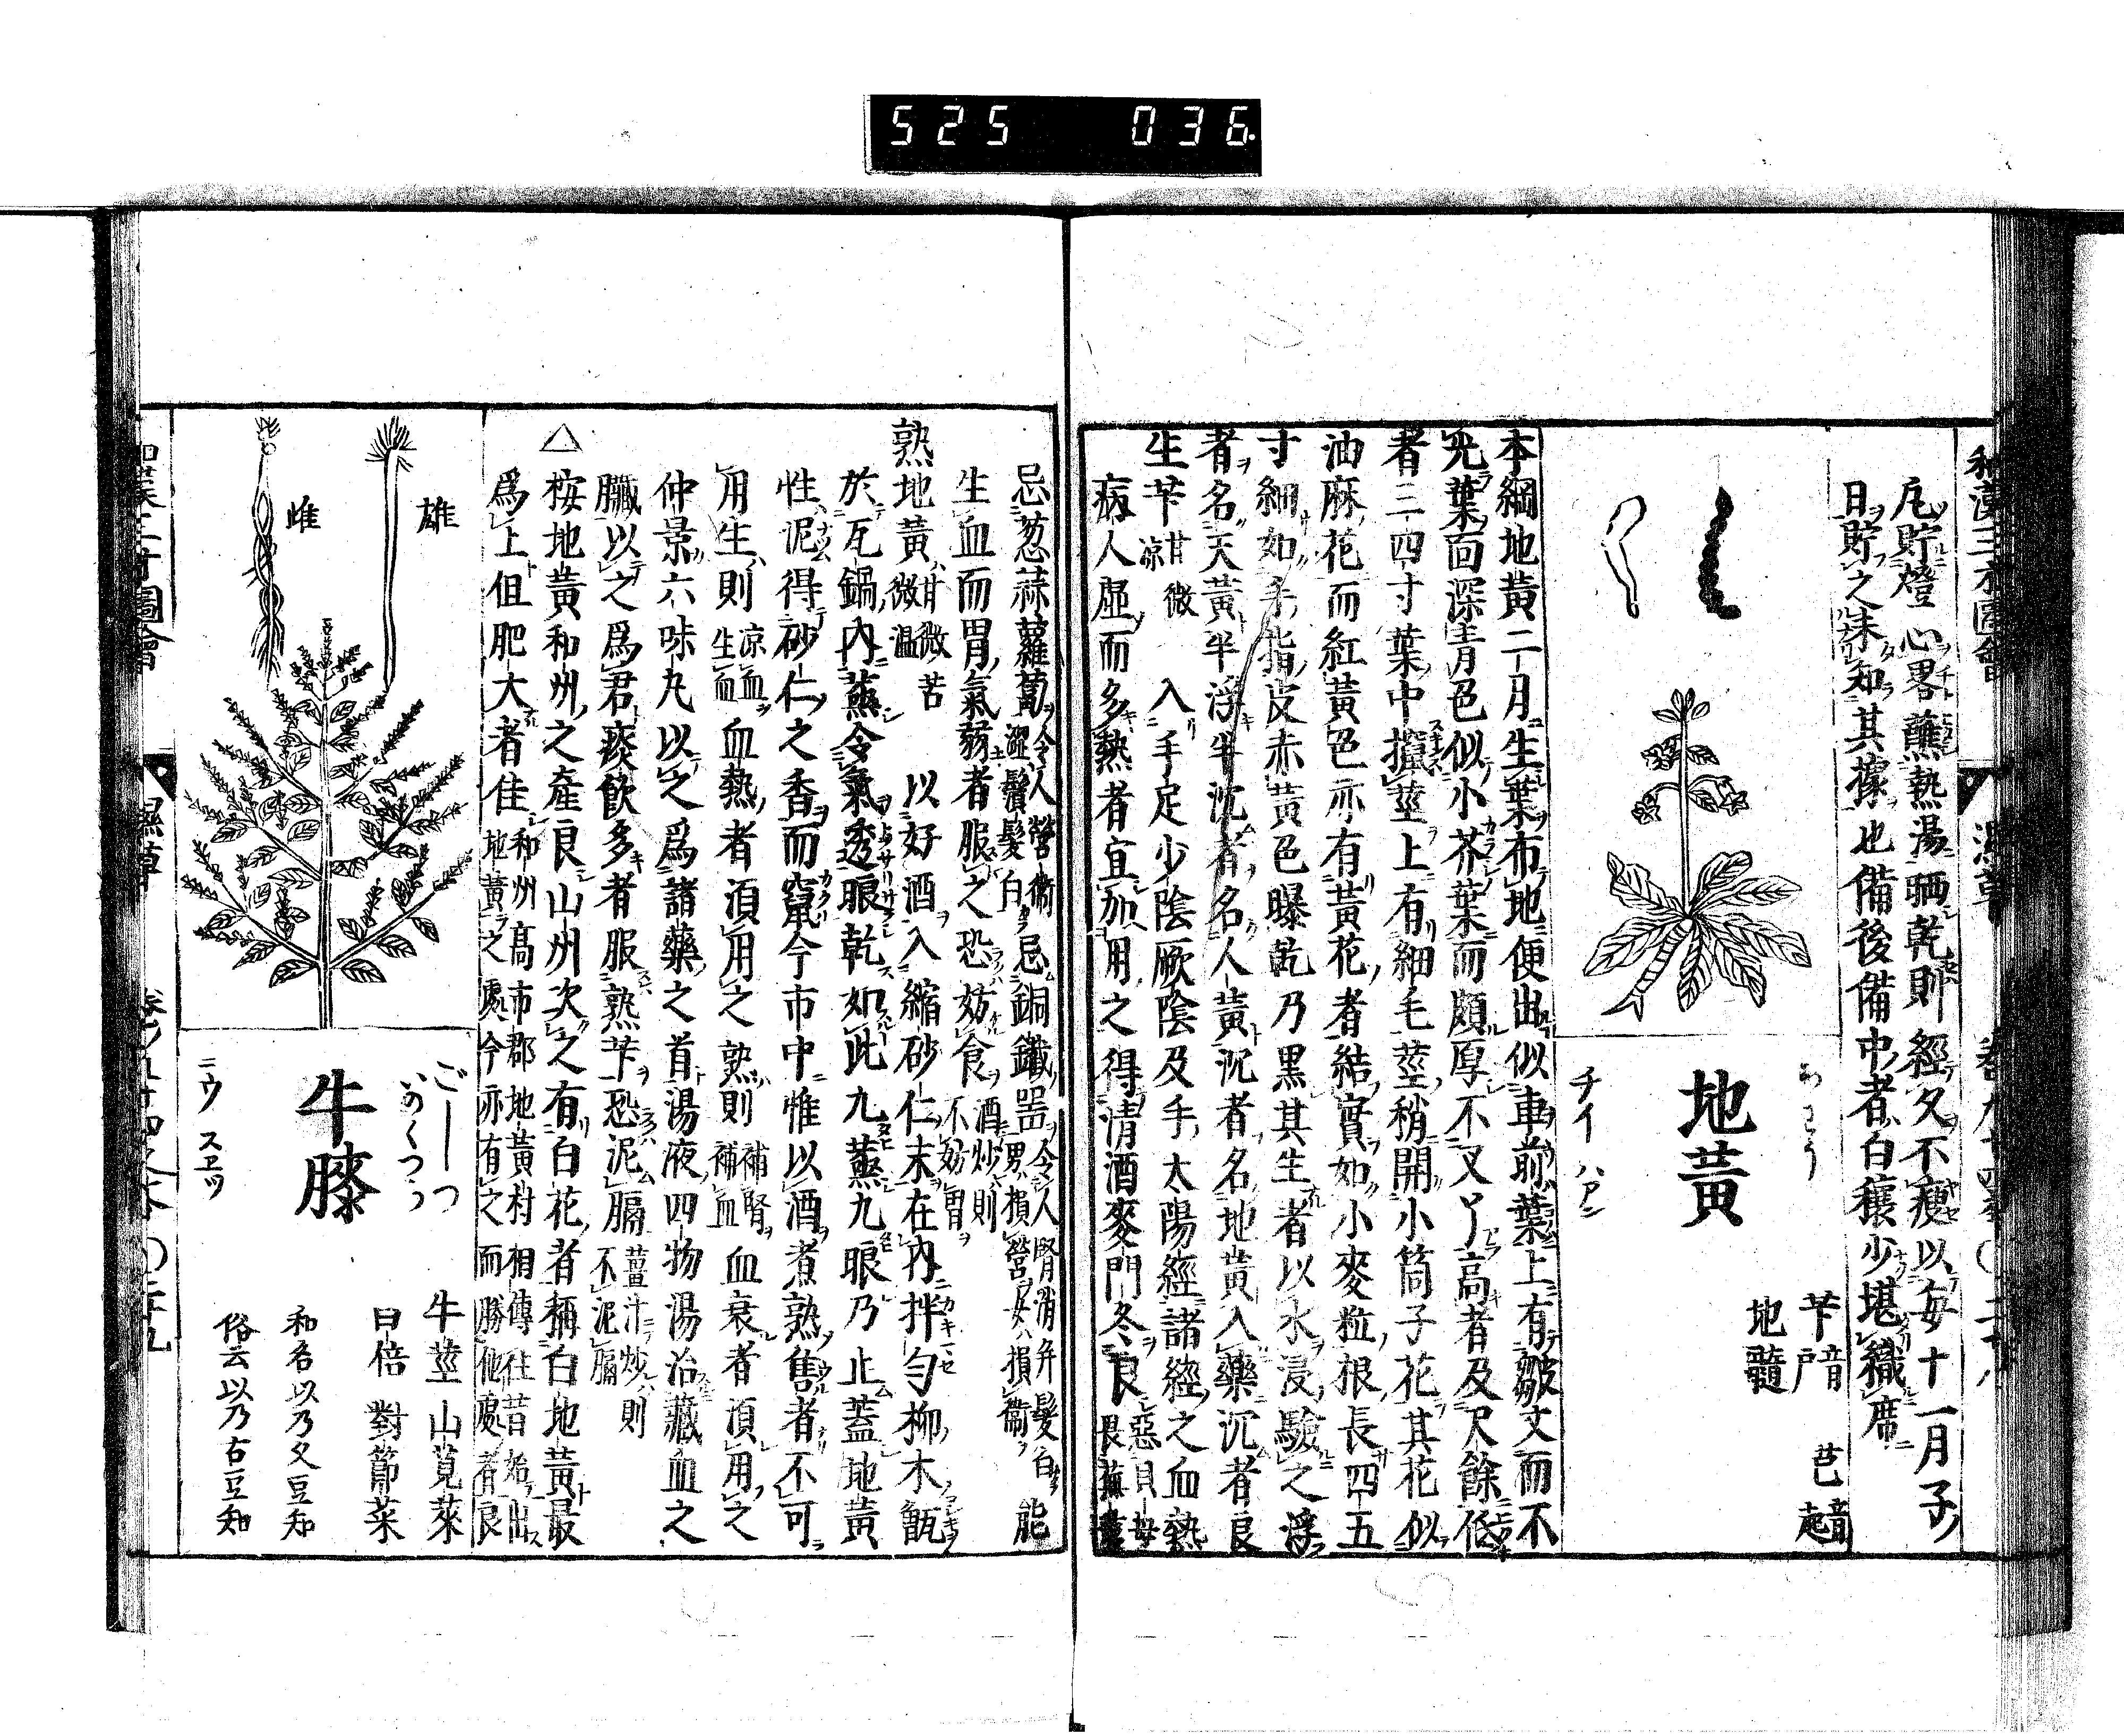 525 036.
和漢三才圖會 濕草 卷九十四
凡貯燈心畧蘸熱湯晒乾則經久不瘦以每十一月子
日貯之未知其據也備後備中者白穰少堪織席
地黃
チイ ハアン
芐音戶 芑音起
地髓
本綱地黃二月生葉布地便出似車前葉上有皺文而不
光葉面深青色似小芥葉而頗厚不叉丫高者及尺餘低
者三四寸葉中攛莖上有細毛莖稍開小筒子花其花似
油麻花而紅黃色亦有黃花者結實如小麥粒根長四五
寸細如手指皮赤黃色曝乾乃黑其生者以水浸驗之浮
者名天黃半浮半沈者名人黃沉者名地黃入藥沉者良
生芐甘微凉 入手足少陰厥陰及手太陽經諸經之血熱
病人虛而多熱者宜加用之得清酒麥門冬良惡貝母畏蕪荑
忌葱蒜蘿蔔令人營衞澀鬚髮白忌銅鐵器令人腎消并髮白男損營女損衞能
生血而胃氣弱者服之恐妨食酒炒則不妨胃
熟地黃甘微苦微温 以好酒入縮砂仁末在内拌勻柳木甑
於瓦鍋内蒸令氣透晾乾如此九蒸九晾乃止蓋地黃
性泥得砂仁之香而竄今市中惟以酒煮熟售者不可
用生則凉血生血血熱者須用之熟則補腎補血血衰者須用之
仲景六味丸以之爲諸藥之首湯液四物湯治藏血之
臟以之爲君痰飲多者服熟芐恐泥膈薑汁炒則不泥膈
△按地黃和州之産良山州次之有白花者稱白地黃最
爲上但肥大者佳和州高市郡地黃村相傳往昔始出地黃之處今亦有之而勝他處者良
雄
雌
牛膝
ニウ スヱツ
牛莖 山莧菜
曰倍 對節菜
和名以乃久豆知
俗云以乃古豆知